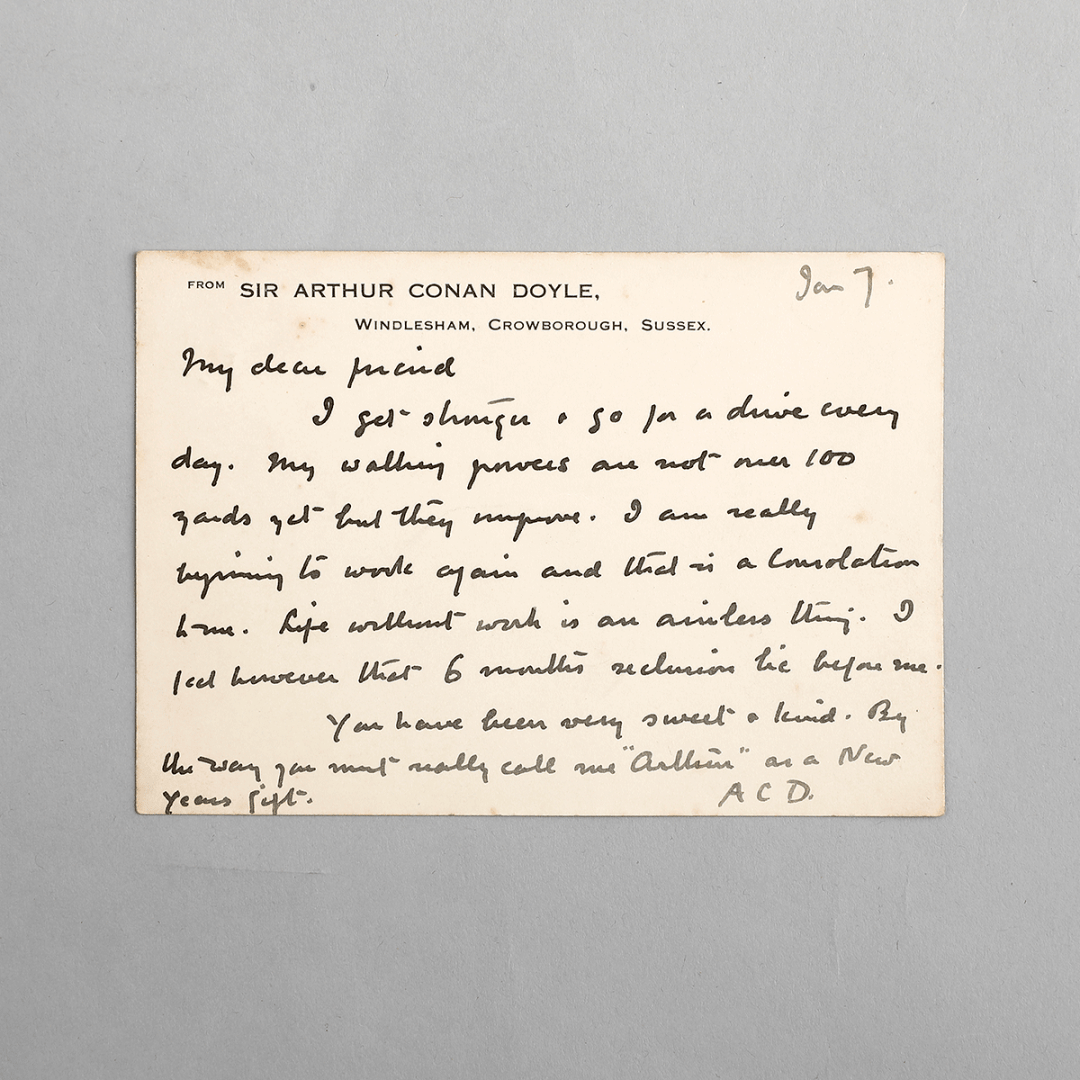 FROM SIR ARTHUR CONAN DOYLE,
WINDLESHAM, CROWBOROUGH, SUSSEX.
Jan 7.
My dear friend
I get stronger & go for a drive every
day. My walking powers are not over 100
yards yet but they improve. I am really
beginning to work again and that is a consolation
to me. Life without work is an aimless thing. I
feel however that 6 months seclusion lie before me.
You have been very sweet & kind. By
the way you must really call me "Arthur" as a New
Years gift.
A C D.